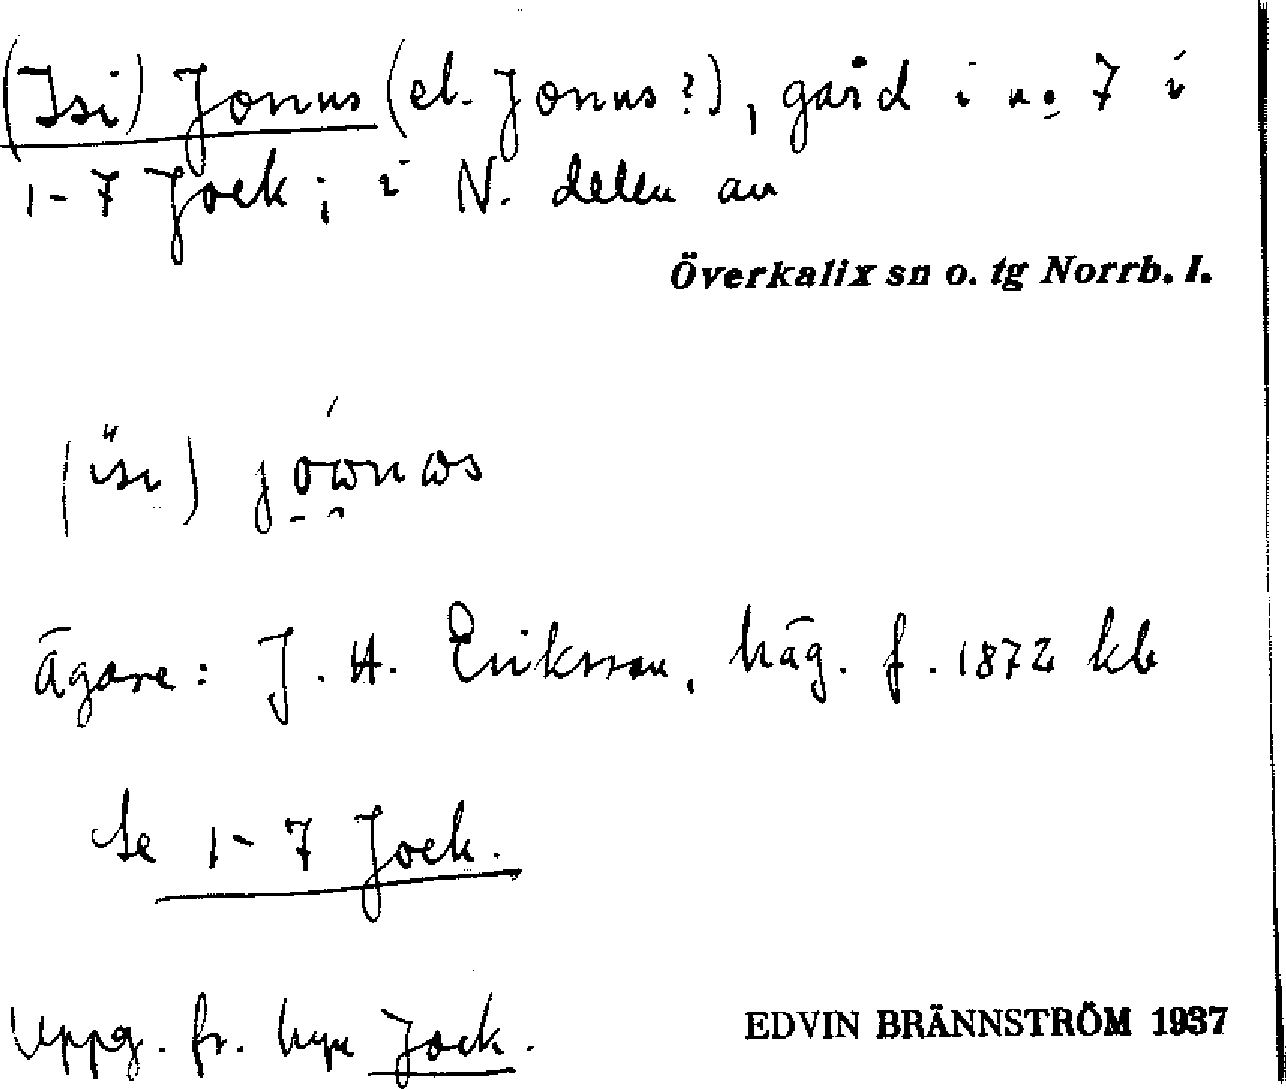 (Isi) Jonus (el. Jonus?), gård i no 7 i
1-7 Jock; i N. delen av
Överkalix sn o. tg Norrb. l.
ägare: J. H. Eriksson, häg. f. 1872 kb
Se 1-7 Jock.
Uppg. fr. byn Jock.
EDVIN BRÄNNSTRÖM 1937